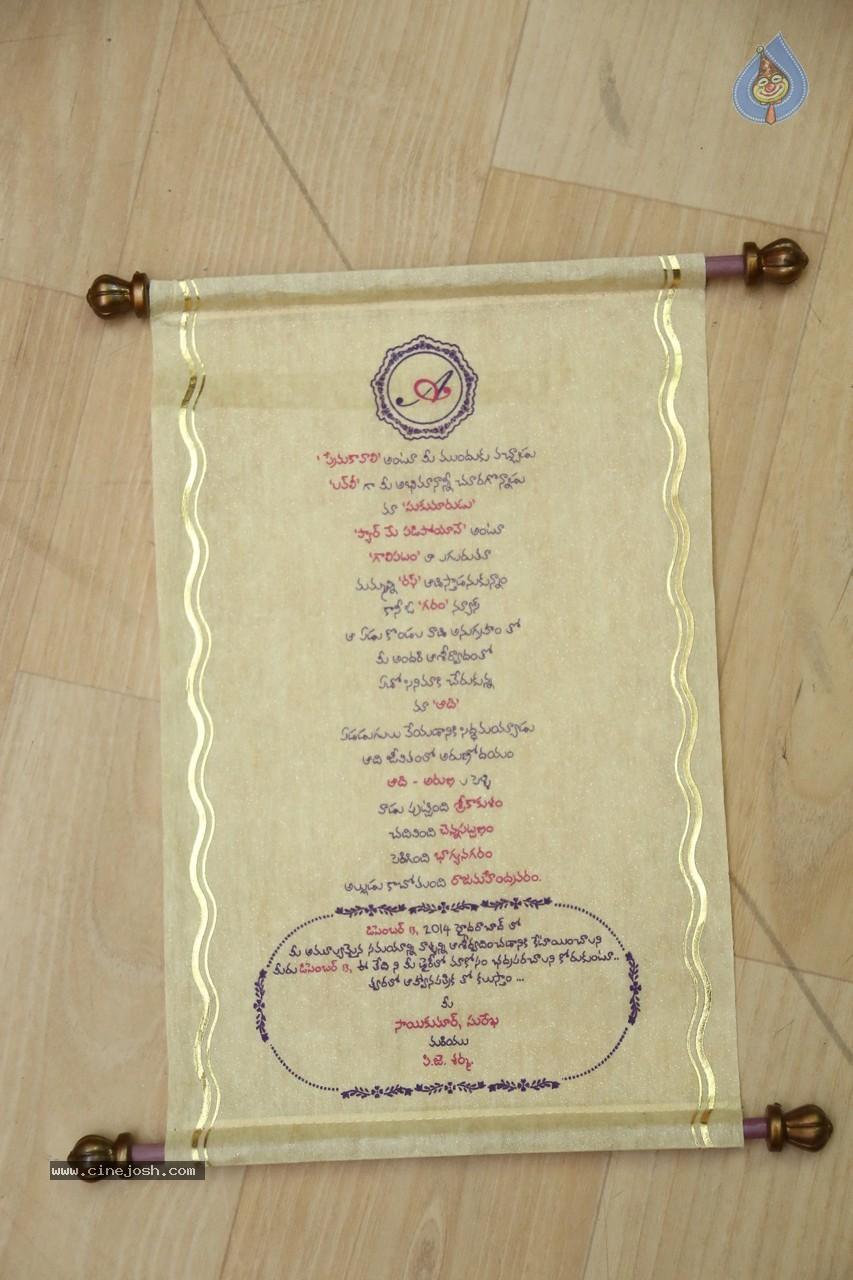 A
'ప్రేమకావాలి' అంటూ మీ ముందుకు వచ్చాడు
'లవ్‌లీ' గా మీ అభిమానాన్నే చూరగొన్నాడు
మా 'సుకుమారుడు'
'ప్యార్ మే పడిపోయానే' అంటూ
'గాలిపటం' లా ఎగురుతూ
మమ్మల్ని 'రఫ్' ఆడిస్తాడనుకున్నాం
కానీ ఓ 'గరం' న్యూస్
ఆ ఏడు కొండల వాడి అనుగ్రహం తో
మీ అందరి ఆశీర్వాదంతో
ఏడో సినిమాకి చేరుకున్న
మా 'ఆది'
ఏడడుగులు వేయడానికి సిద్ధమయ్యాడు
ఆది జీవితంలో అరుణోదయం
ఆది - అరుణ ల పెళ్ళి
వాడు పుట్టింది శ్రీకాకుళం
చదివింది చెన్నపట్టణం
పెరిగింది భాగ్యనగరం
అల్లుడు కాబోతుంది రాజమహేంద్రవరం.
డిసెంబర్ 13, 2014 హైదరాబాద్ లో
మీ అమూల్యమైన సమయాన్ని వాళ్ళన్ని ఆశీర్వదించడానికి కేటాయించాలని
మీరు డిసెంబర్ 13, ఈ తేది ని మీ డైరీలో మాకోసం భద్రపరచాలని కోరుకుంటూ..
త్వరలో ఆహ్వానపత్రిక తో కలుస్తాం ...
మీ
సాయికుమార్, సురేఖ
మరియు
పి.జె. శర్మ.
www.cinejosh.com